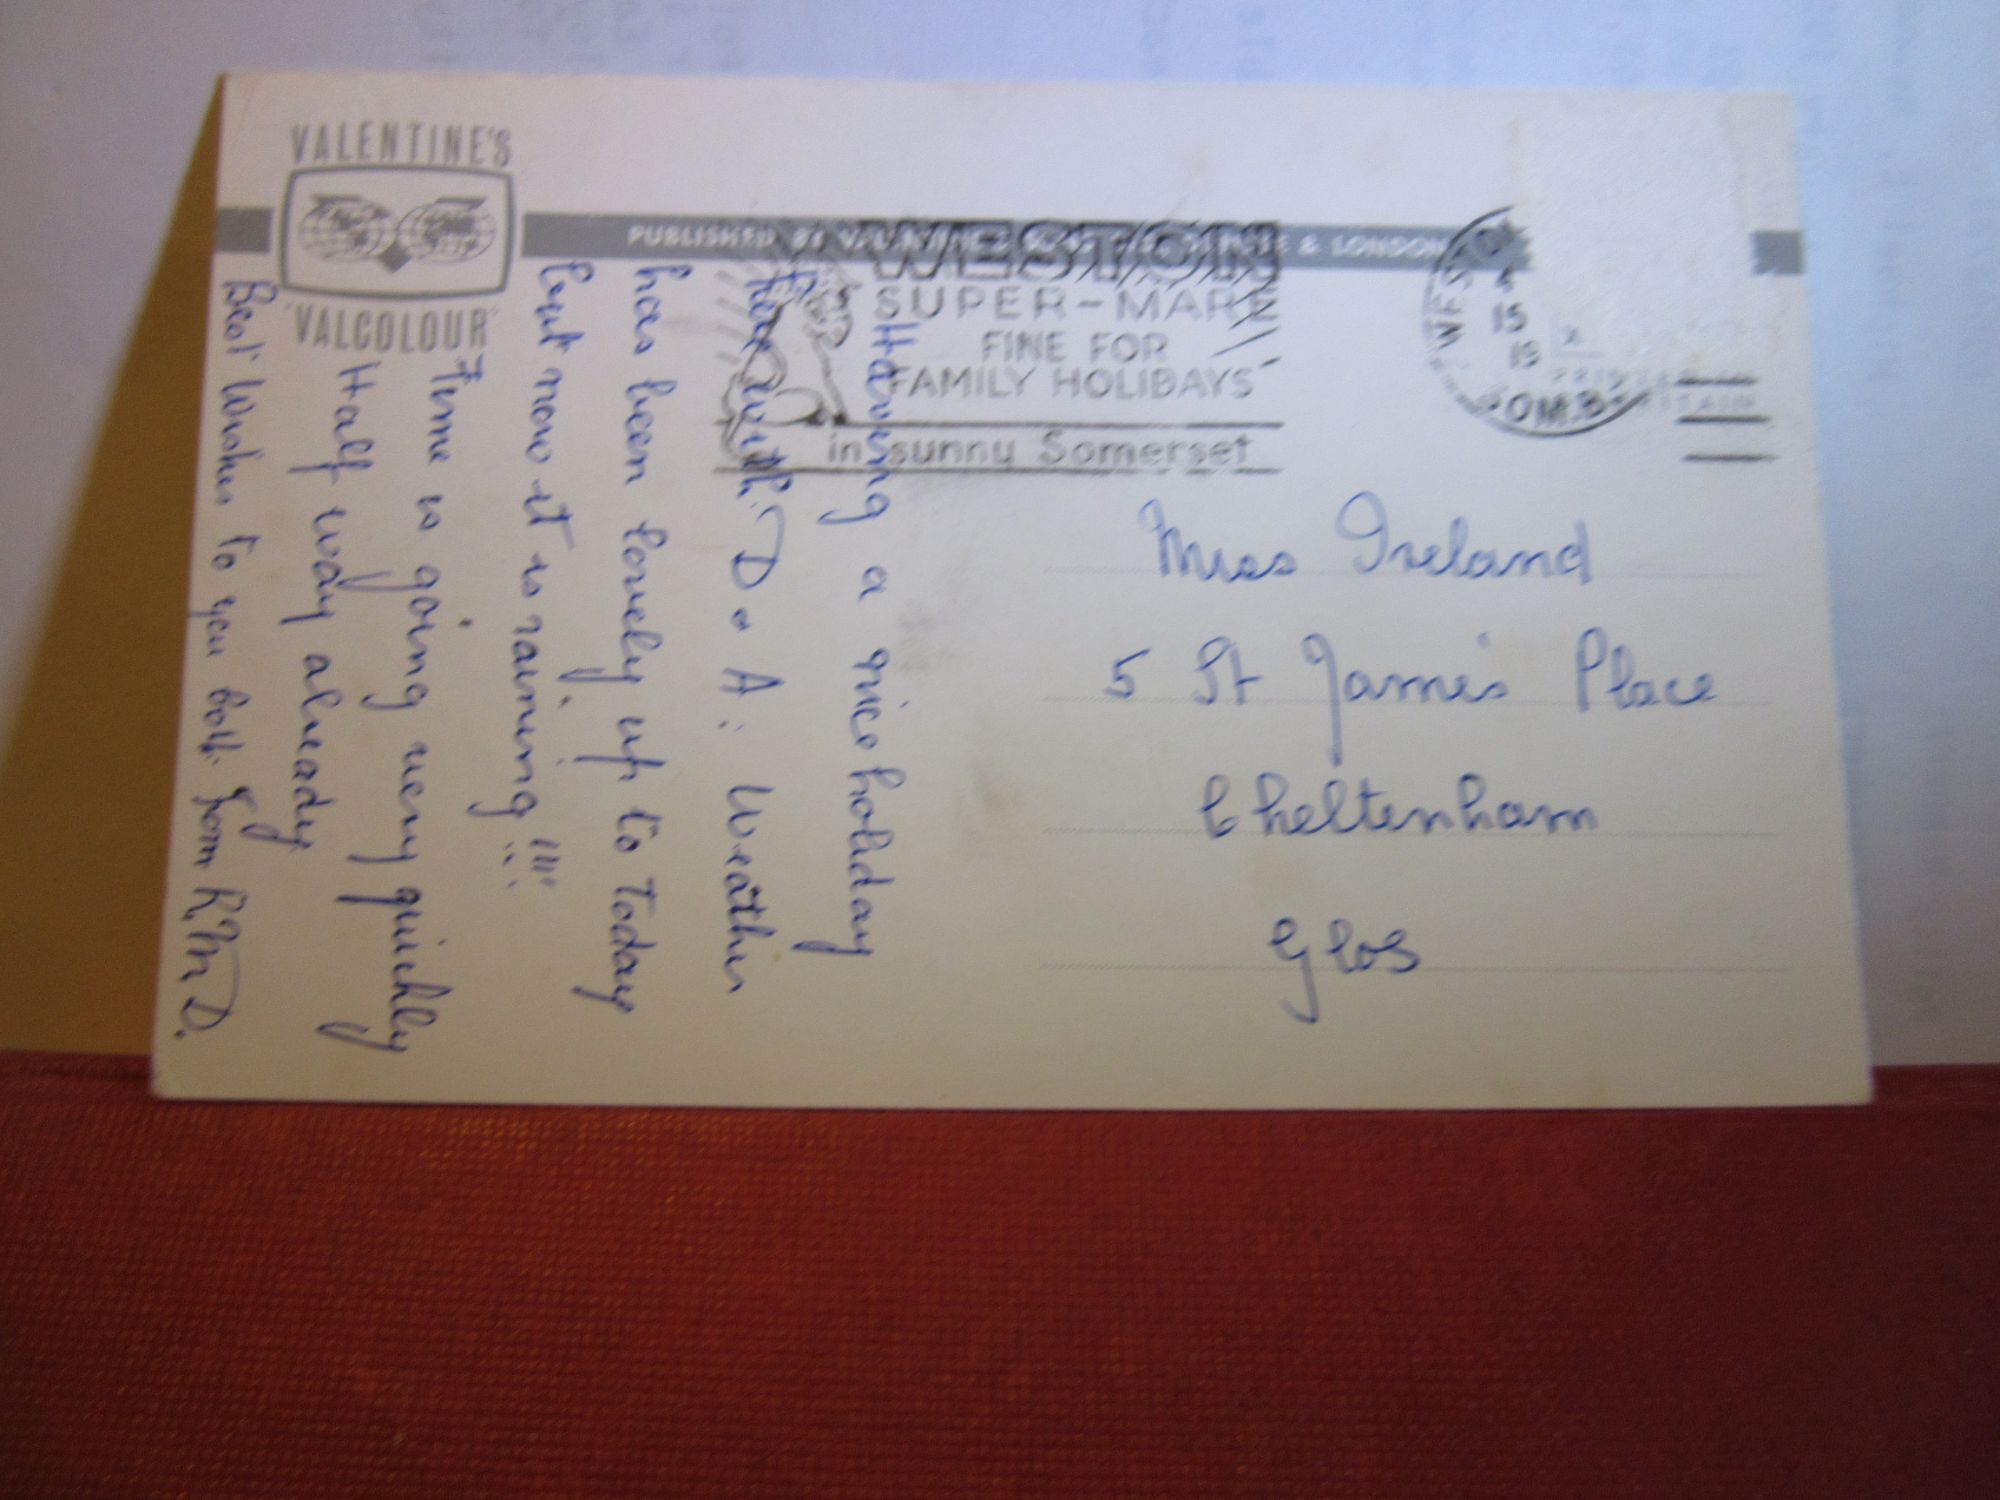 VALENTINE'S
"VALCOLOUR"
PUBLISHED BY VALENTINE & SONS & LONDON
WESTON
SUPER-MARE
FINE FOR
FAMILY HOLIDAYS
in sunny Somerset
WESTON
15
SOM
Having a nice holiday
here with D. A. Weather
has been lovely up to today
but now it is raining!!!
Time is going very quickly
Half way already
Best Wishes to you both from R.M D.
Miss Ireland
5 St James Place
Cheltenham
Glos